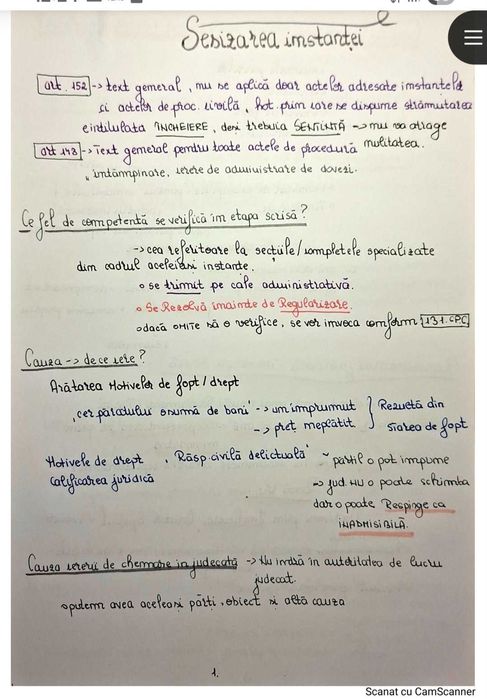 Sesizarea instanței
art. 152 -> text general, nu se aplică doar actelor adresate instantelor
ci actelor de proc. civilă, hot. prim care se dispune strămutarea
e intitulata ÎNCHEIERE, deși trebuia SENTINTĂ -> nu va atrage
nulitatea.
art 148 -> Text general pentru toate actele de procedură
întâmpinare, cerere de administrare de dovezi.
Ce fel de competentă se verifică în etapa scrisă?
-> cea referitoare la secțiile/completele specializate
din cadrul aceleiași instante.
o se trimit pe cale administrativă.
o Se Rezolvă inainte de Regularizare.
o dacă OMITE să o verifice, se vor invoca conform 131 CPC
Cauza -> de ce cere?
Arătarea Motivelor de fapt/drept
"cer paratului o sumă de bani" -> un imprumut
-> preț neplătit
Rezultă din
starea de fapt
Motivele de drept "Răsp civilă delictuală" ~ părțile o pot impune
calificarea juridică
=> jud. NU o poate schimba
dar o poate Respinge ca
INADMISIBILĂ.
Cauza cererii de chemare in judecată -> Nu intră în autoritatea de lucru
judecat.
o putem avea aceleași părți, obiect și altă cauza
1.
Scanat cu CamScanner